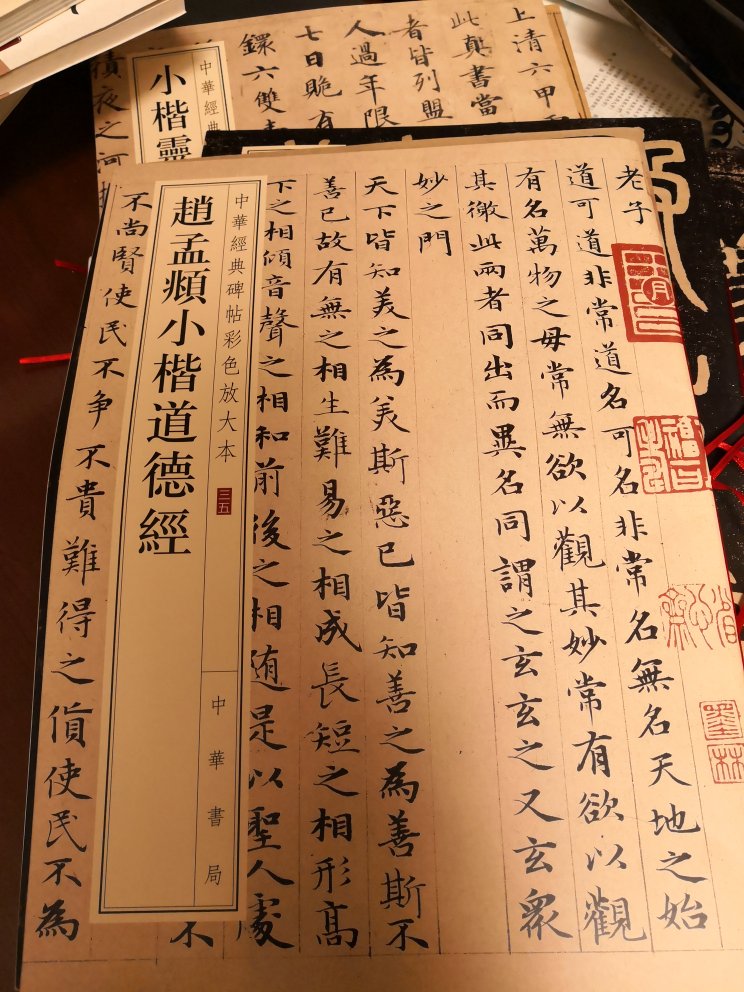 老子
道可道非常道名可名非常名無名天地之始
有名萬物之母常無欲以觀其妙常有欲以觀
其徼此兩者同出而異名同謂之玄玄之又玄眾
妙之門
天下皆知美之為美斯惡已皆知善之為善斯不
善已故有無之相生難易之相成長短之相形高
下之相傾音聲之相和前後之相随是以聖人處
不
不尚賢使民不争不貴難得之貨使民不為
中華經典碑帖彩色放大本
三五
趙孟頫小楷道德經
中華書局
上清六甲
此真書當
者皆列盟
人過年限
七日跪有
鐶六雙
中華經典
小楷靈
之河